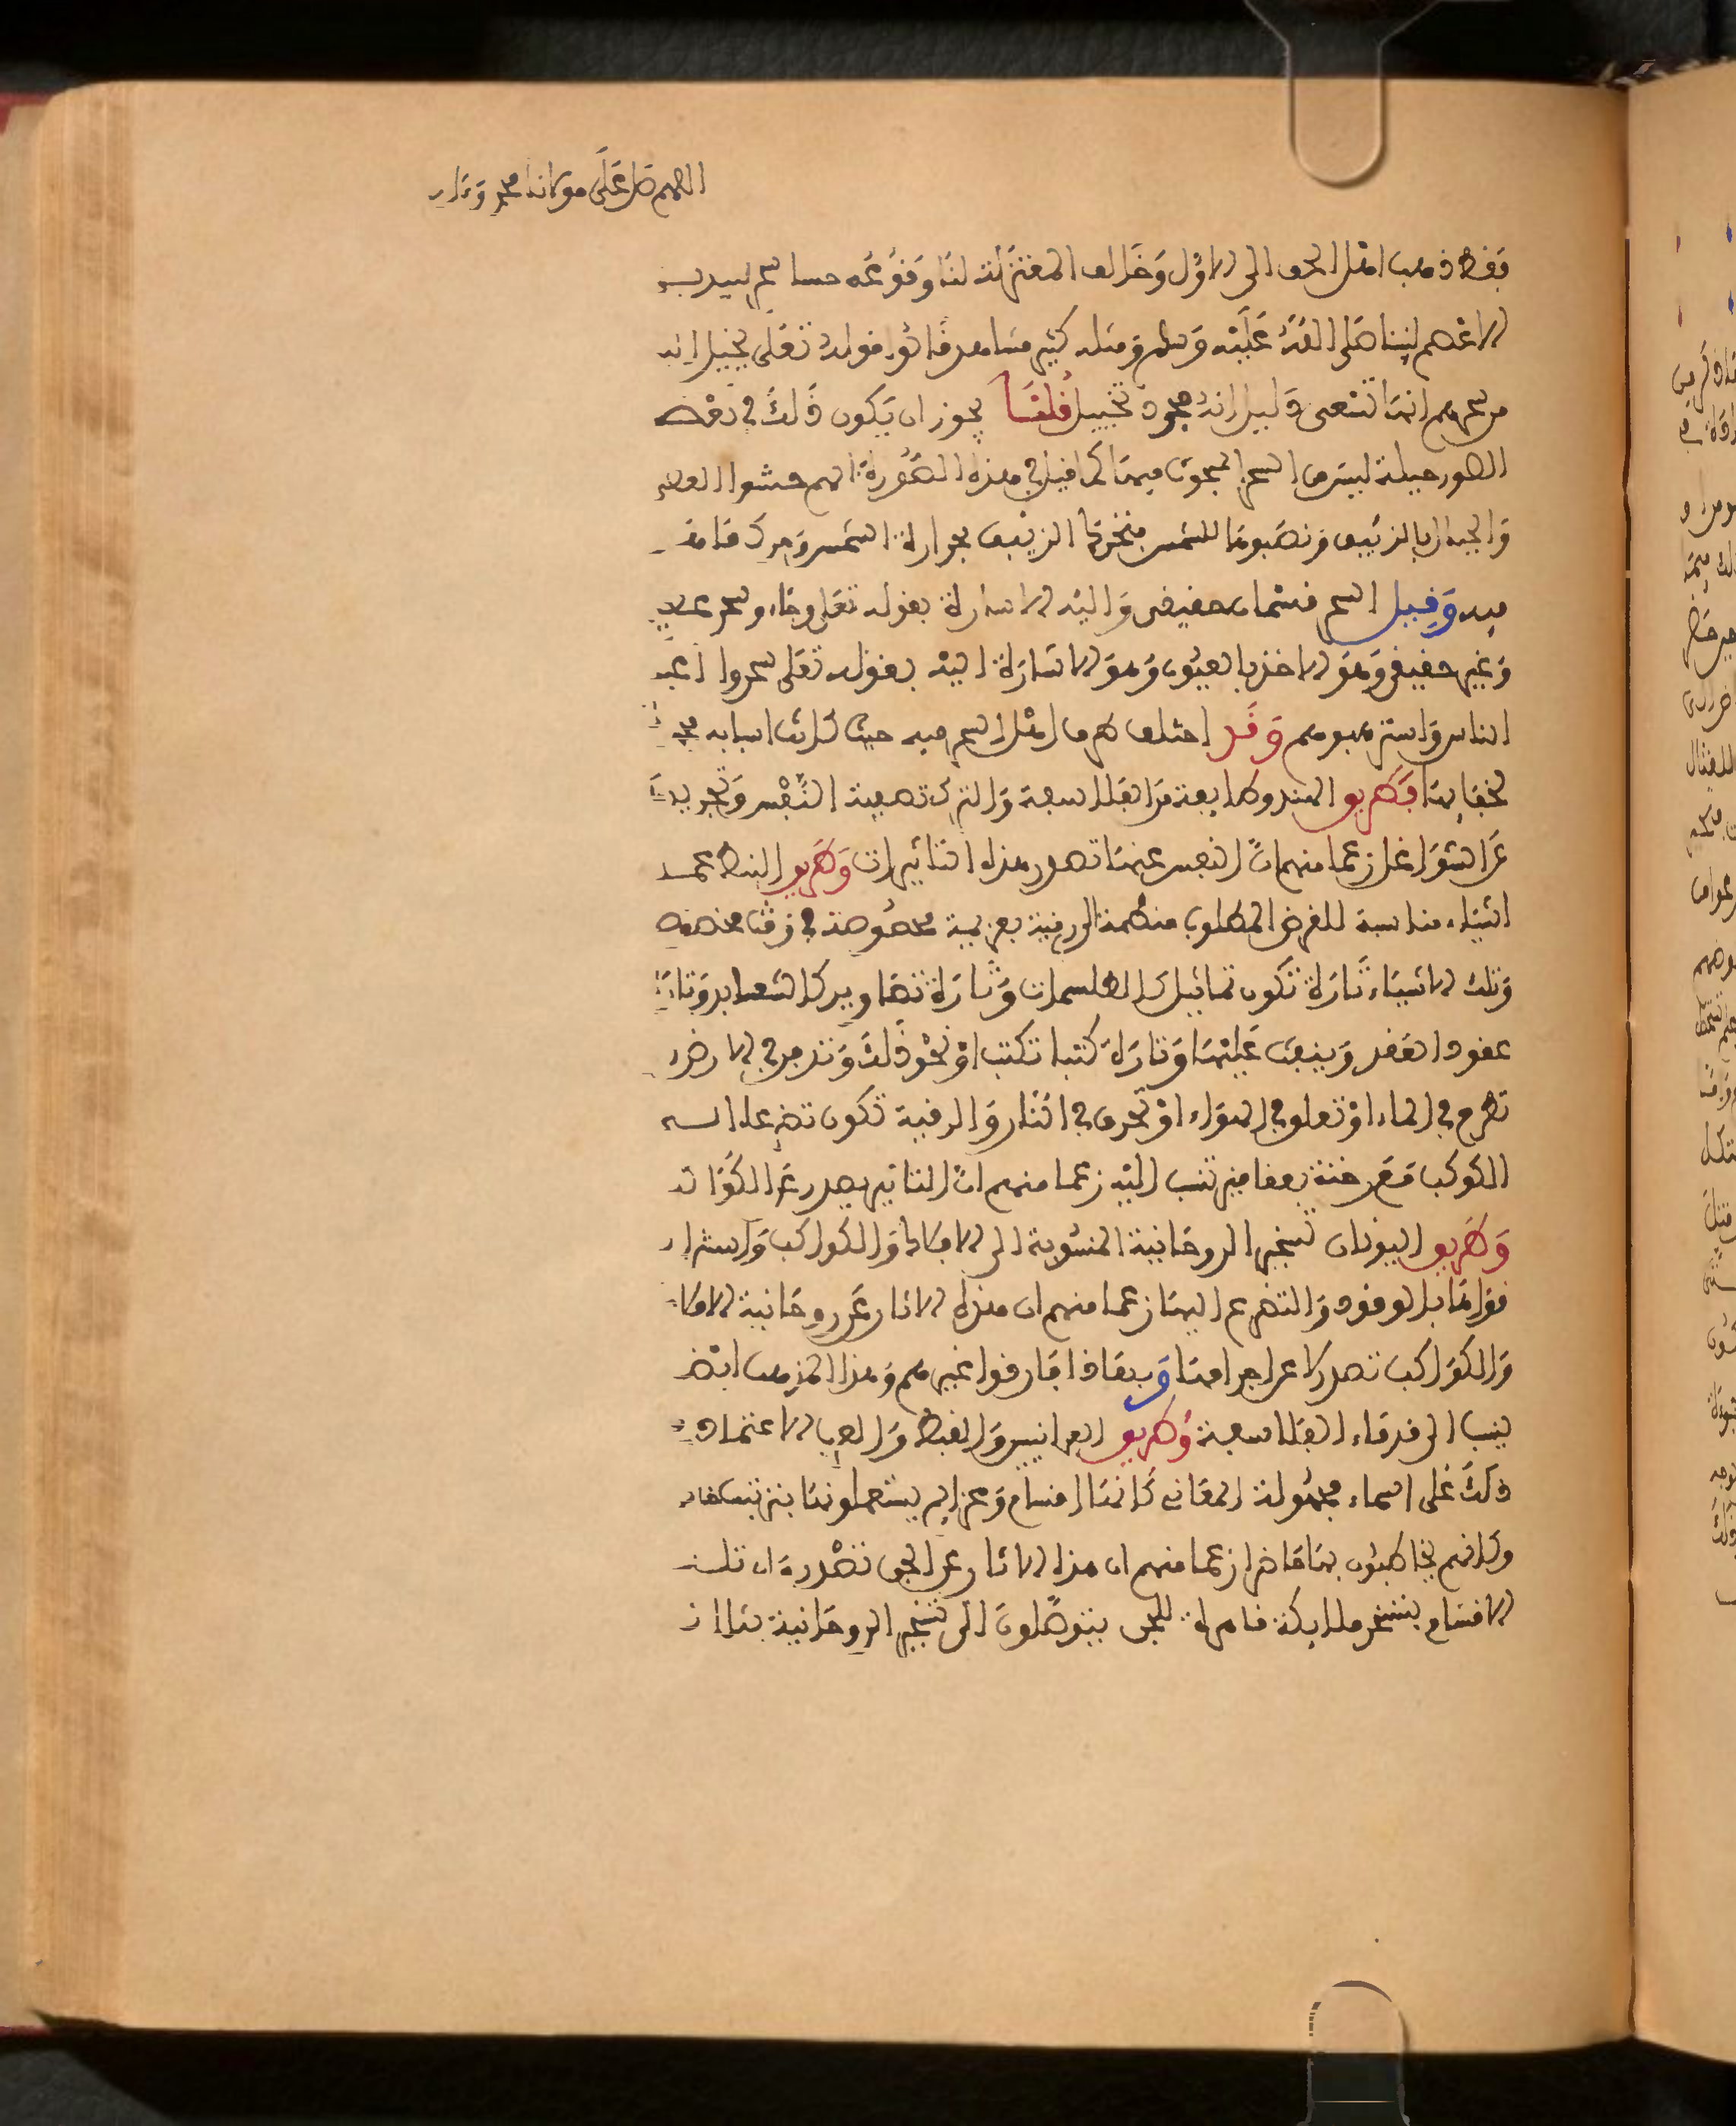 اللهم صل على مولانا محمد وءال
فقط ذهب اهل الحق الى الاول وخالف المعتزلة لنا وقوعه حسا سحر لبيد بن
الاعصم لنبينا صلى الله عليه وسلم ومثله كثير مشاهد قالوا قوله تعلى يخيل اليه
من سحرهم انها تسعى دليل انه مجرد تخييل قلنا يجوز ان يكون ذلك في بعض
الصور حيلة ليس من السحر المبحوث فيه كما قيل في هذه الصورة انهم حشوا العصي
والحبال بالزئبق ونصبوها للشمس فتحرك الزئبق بحرارة الشمس وحرك ما
فيه وقيل السحر قسمان حقيقي واليه الاشارة بقوله تعلى وجاءو بسحر عظيم
وغير حقيقي وهو الاخذ بالعيون وهو الاشارة اليه بقوله تعلى سحروا اعين
الناس واسترهبوهم وقد اختلف طرق اهل السحر فيه حيث كانت اسبابه
لخفائها فطريق الهند وطائفة من الفلاسفة والترك تصفية النفس وتجريدها
عن الشواغل زعما منهم ان النفس عنها تصدر هذه التاثيرات وطريق النبط عمل
اشياء مناسبة للغرض المطلوب منضمة الى رقية بعزيمة مخصوصة في وقت مخصوص
وتلك الاشياء تارة تكون تماثيل كالطلسمات وتارة تصاوير كالشعابر وتارة
عقودا تعقد وينفث عليها وتارة كتبا تكتب او نحو ذلك وتدفن في الارض او
تطرح في الماء او تعلق في الهواء او تحرق في النار والرقية تكون تضرعا الى
الكوكب مع دخنة بعقاقير تنسب اليه زعما منهم ان التاثير يصدر عن الكواكب
وطريق اليونان تسخير الروحانية المنسوبة الى الافلاك والكواكب واستنزال
قواها بالوقوف والتضرع اليها زعما منهم ان هذه الاثار عن روحانية الافلاك
والكواكب تصدر لا عن اجرامها وبهذا فارقوا غيرهم وهذا المذهب ايضا
ينسب الى قدماء الفلاسفة وطريق العبرانيين والقبط والعرب الاعتماد في
ذلك على اسماء مجهولة المعاني كانها اقسام وعزائم يستعملونها بترتيب خاص
وكانهم يخاطبون بها حاضرا زعما منهم ان هذه الاثار عن الجن تصدر وان تلك
الاقسام تسخر ملائكة قاهرة للجن يتوصلون الى تسخير الروحانية